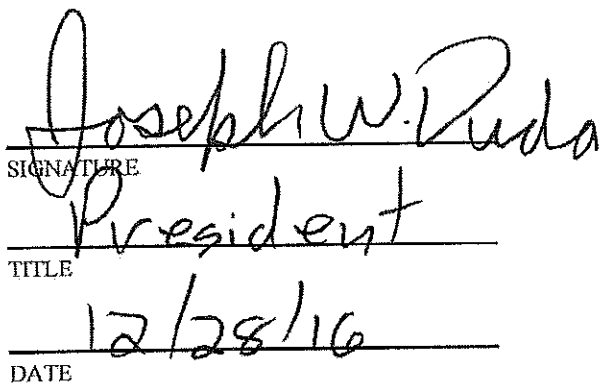 Joseph W. Duda
SIGNATURE
President
TITLE
12/28/16
DATE